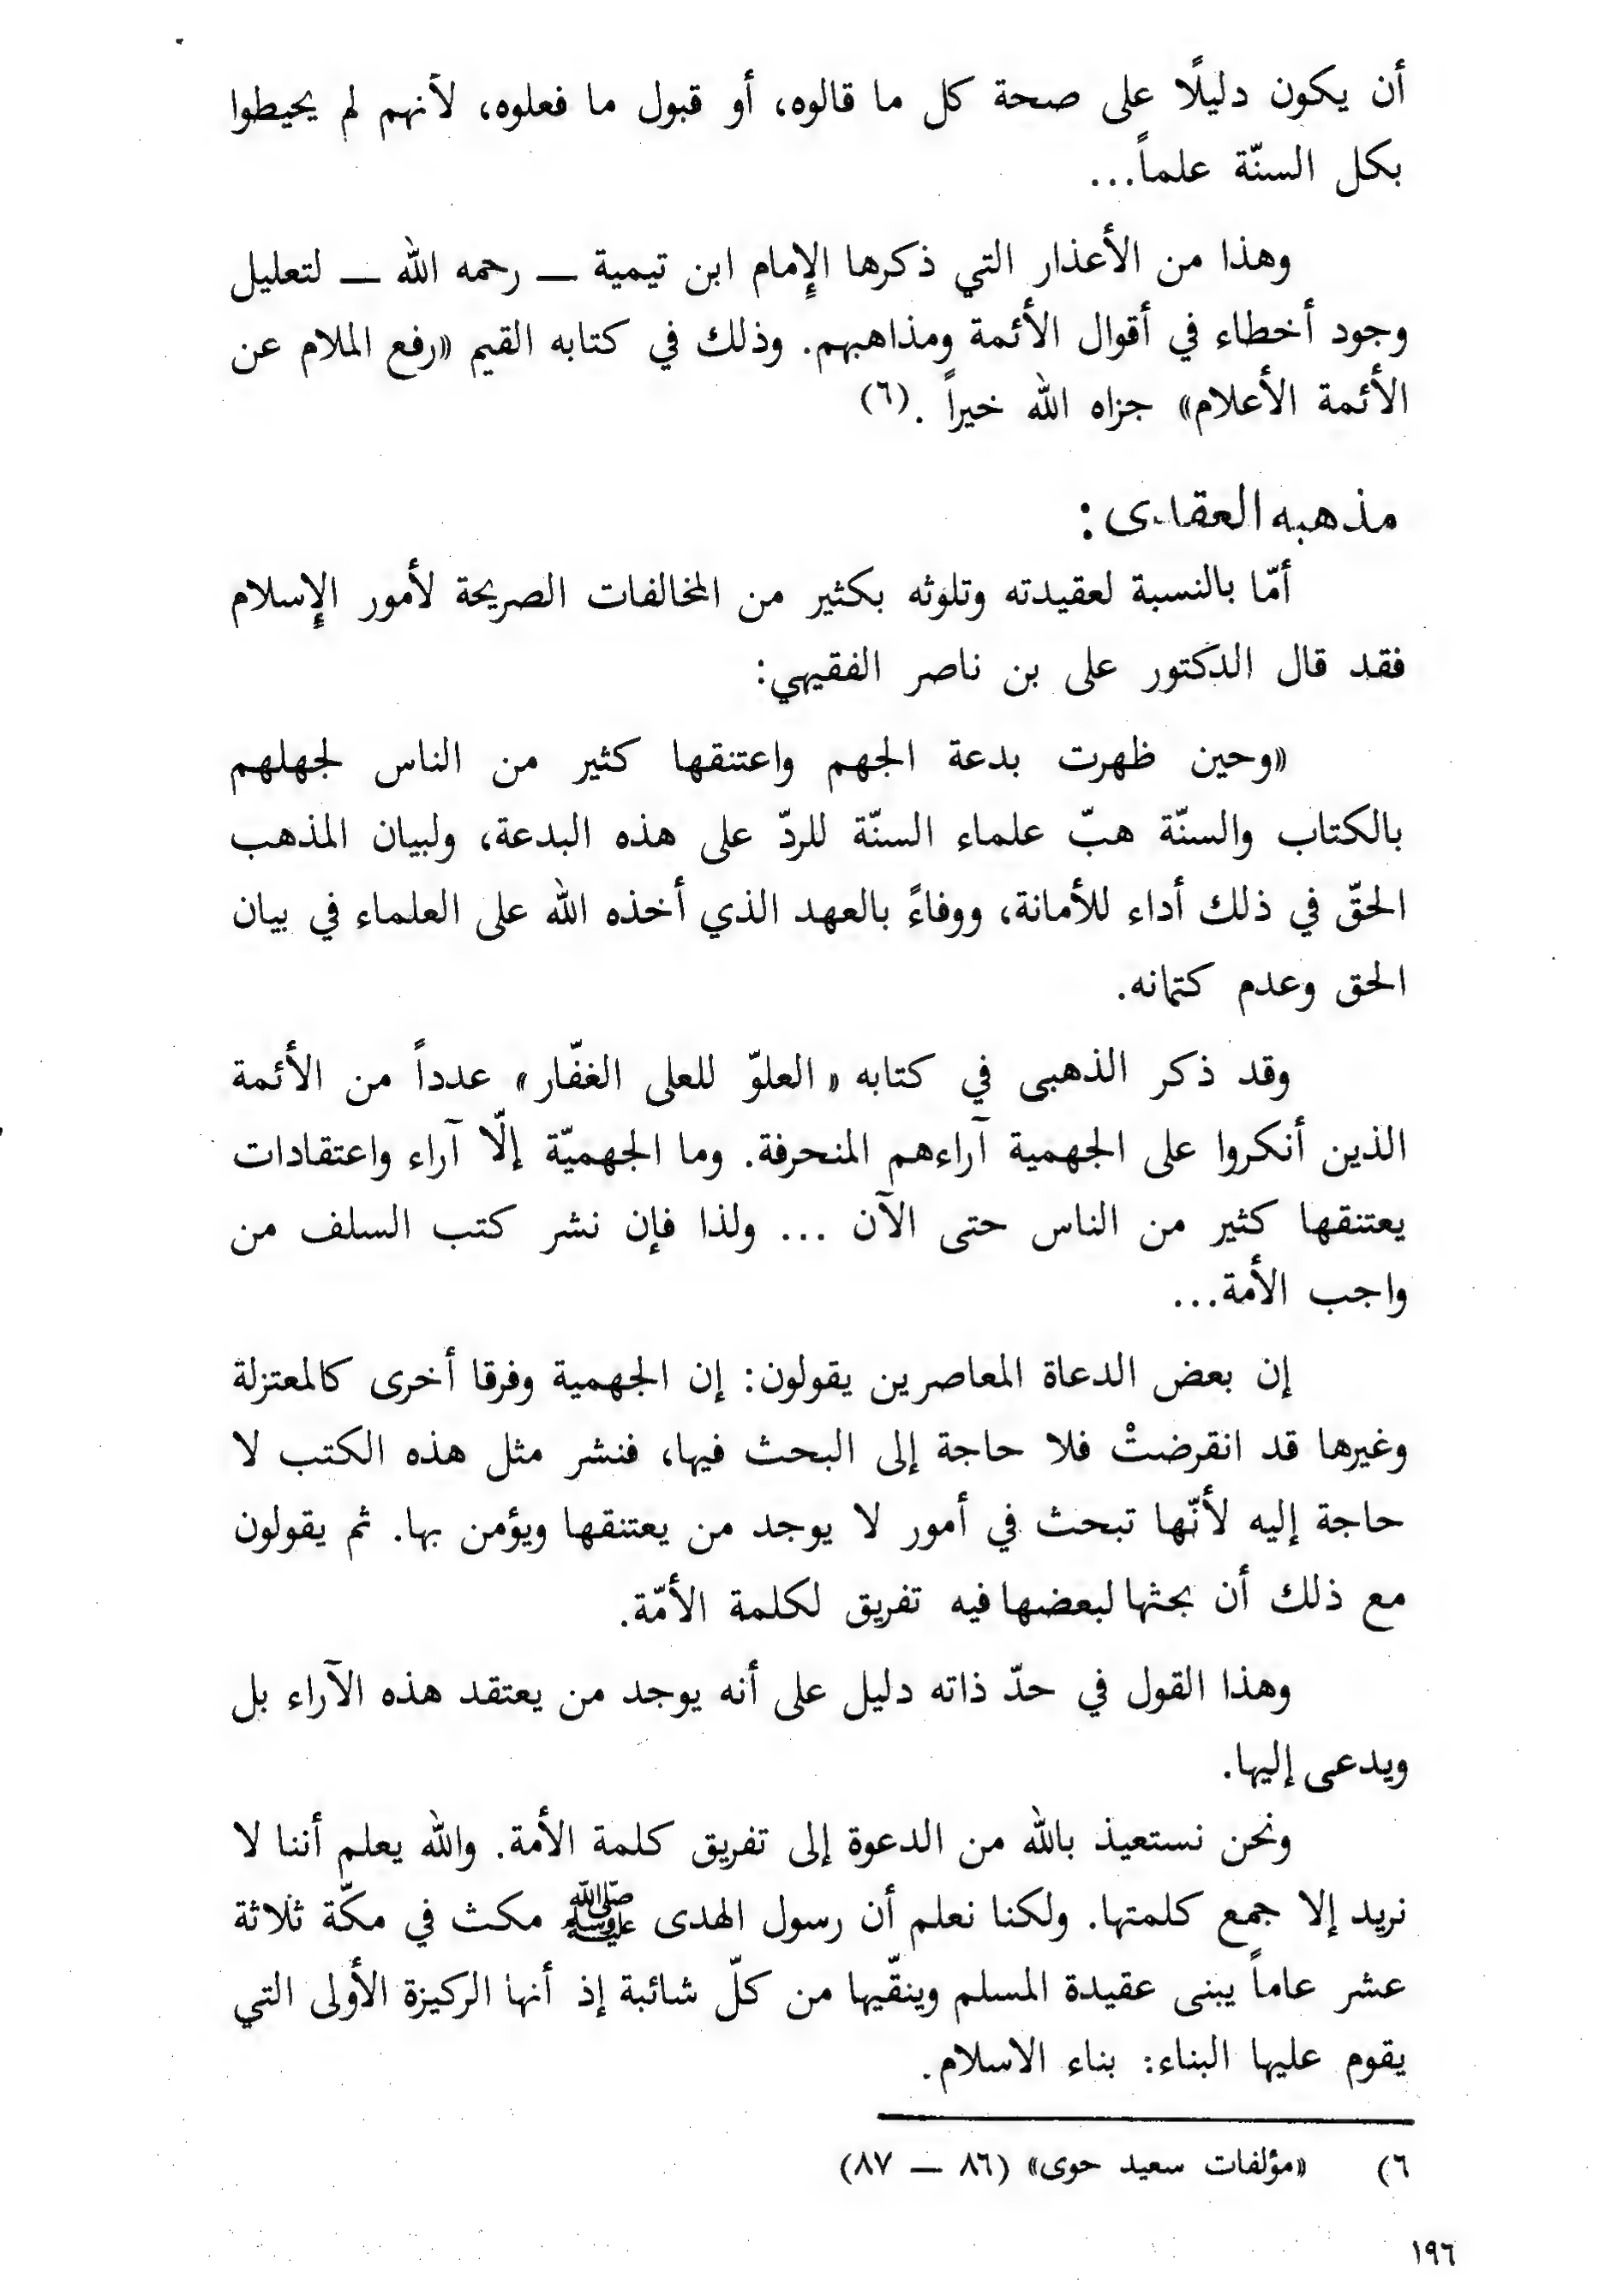 أن يكون دليلًا على صحة كل ما قالوه، أو قبول ما فعلوه، لأنهم لم يحيطوا
بكل السنّة علماً...
وهذا من الأعذار التي ذكرها الإمام ابن تيمية — رحمه الله — لتعليل
وجود أخطاء في أقوال الأئمة ومذاهبهم. وذلك في كتابه القيم «رفع الملام عن
الأئمة الأعلام» جزاه الله خيراً .(٦)
مذهبه العقادى :
أمّا بالنسبة لعقيدته وتلوثه بكثير من المخالفات الصريحة لأمور الإسلام
فقد قال الدكتور على بن ناصر الفقيهي:
«وحين ظهرت بدعة الجهم واعتنقها كثير من الناس لجهلهم
بالكتاب والسنّة هبّ علماء السنّة للردّ على هذه البدعة، ولبيان المذهب
الحقّ في ذلك أداء للأمانة، ووفاءً بالعهد الذي أخذه الله على العلماء في بيان
الحق وعدم كتمانه.
وقد ذكر الذهبى في كتابه «العلوّ للعلى الغفّار» عدداً من الأئمة
الذين أنكروا على الجهمية آراءهم المنحرفة. وما الجهميّة إلّا آراء واعتقادات
يعتنقها كثير من الناس حتى الآن ... ولذا فإن نشر كتب السلف من
واجب الأمة...
إن بعض الدعاة المعاصرين يقولون: إن الجهمية وفرقا أخرى كالمعتزلة
وغيرها قد انقرضتْ فلا حاجة إلى البحث فيها، فنشر مثل هذه الكتب لا
حاجة إليه لأنّها تبحث في أمور لا يوجد من يعتنقها ويؤمن بها. ثم يقولون
مع ذلك أن بحثها لبعضها فيه تفريق لكلمة الأمّة.
وهذا القول في حدّ ذاته دليل على أنه يوجد من يعتقد هذه الآراء بل
ويدعى إليها.
ونحن نستعيذ بالله من الدعوة إلى تفريق كلمة الأمة. والله يعلم أننا لا
نريد إلا جمع كلمتها. ولكنا نعلم أن رسول الهدى ﷺ مكث في مكّة ثلاثة
عشر عاماً يبنى عقيدة المسلم وينقّيها من كلّ شائبة إذ أنها الركيزة الأولى التي
يقوم عليها البناء: بناء الاسلام.
٦) «مؤلفات سعيد حوى» (٨٦ — ٨٧)
١٩٦